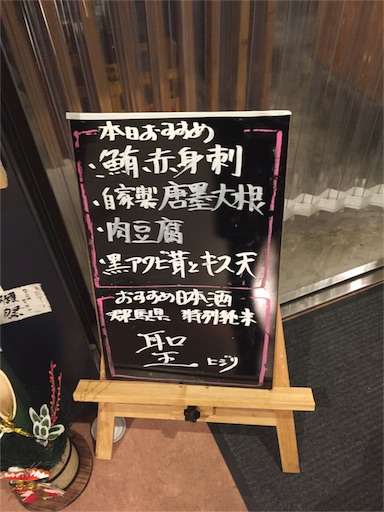 本日おすすめ
・鮪赤身刺
・自家製唐墨大根
・肉豆腐
・黒アワビ茸とキス天
おすすめ日本酒
群馬県 特別純米
聖 ヒジリ